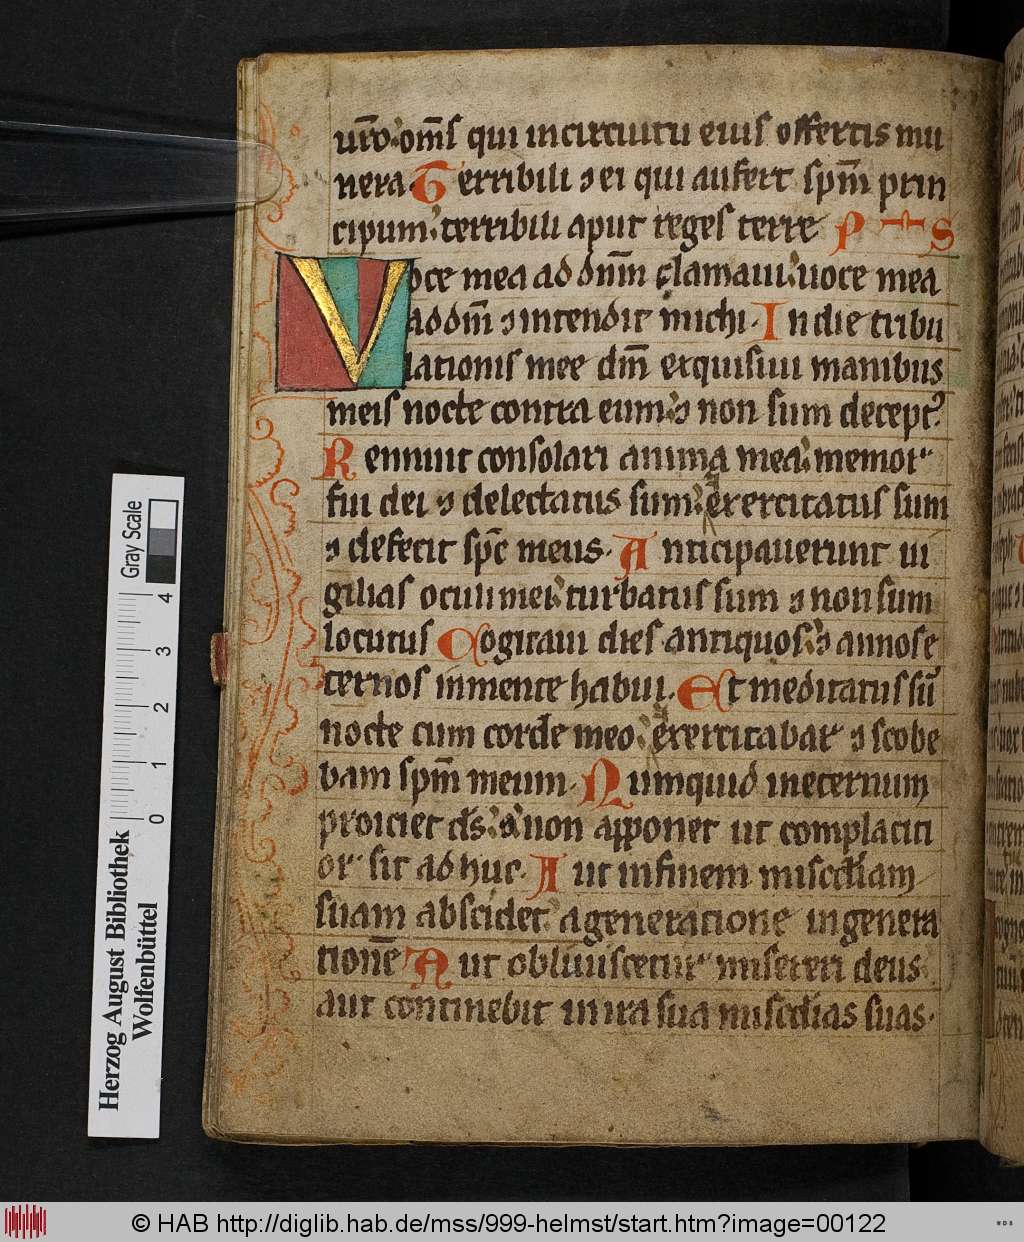 ur̄o oms̄ qui incircuitu eius offertis mu
nera Terribili ⁊ ei qui aufert spm̄ prin
cipum terribili aput reges terre P S
Voce mea ad dnm̄ clamaui uoce mea
ad dm̄ ⁊ intendit michi. In die tribu
lationis mee dm̄ exquisiui manibus
meis nocte contra eum ⁊ non sum decept᷒
Rennuit consolari anima mea memor
fui dei ⁊ delectatus sum exercitatus sum
⁊ defecit spc̄ meus. Anticipauerunt ui
gilias oculi mei turbatus sum ⁊ non sum
locutus Cogitaui dies antiquos ⁊ annos e
ternos inmente habui. Et meditatus sū
nocte cum corde meo exercitabar ⁊ scobe
bam spm̄ meum. Numquid ineternum
proiciet ds̄ ⁊ non apponet ut complaciti
or sit ad huc. Aut infinem misc̄diam
suam abscidet a generatione in genera
tionē Aut obliuiscetur misereri deus
aut continebit in ira sua misc̄dias suas.
Gray Scale
4
3
2
1
0
Herzog August Bibliothek
Wolfenbüttel
© HAB http://diglib.hab.de/mss/999-helmst/start.htm?image=00122